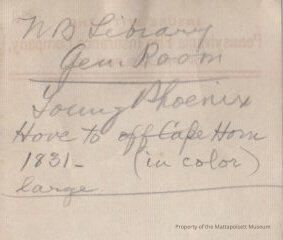 NB Library
Gen. Room
Young Phoenix
Hove to off Cape Horn
1831- (in color)
large.
Property of the Mattapoisett Museum